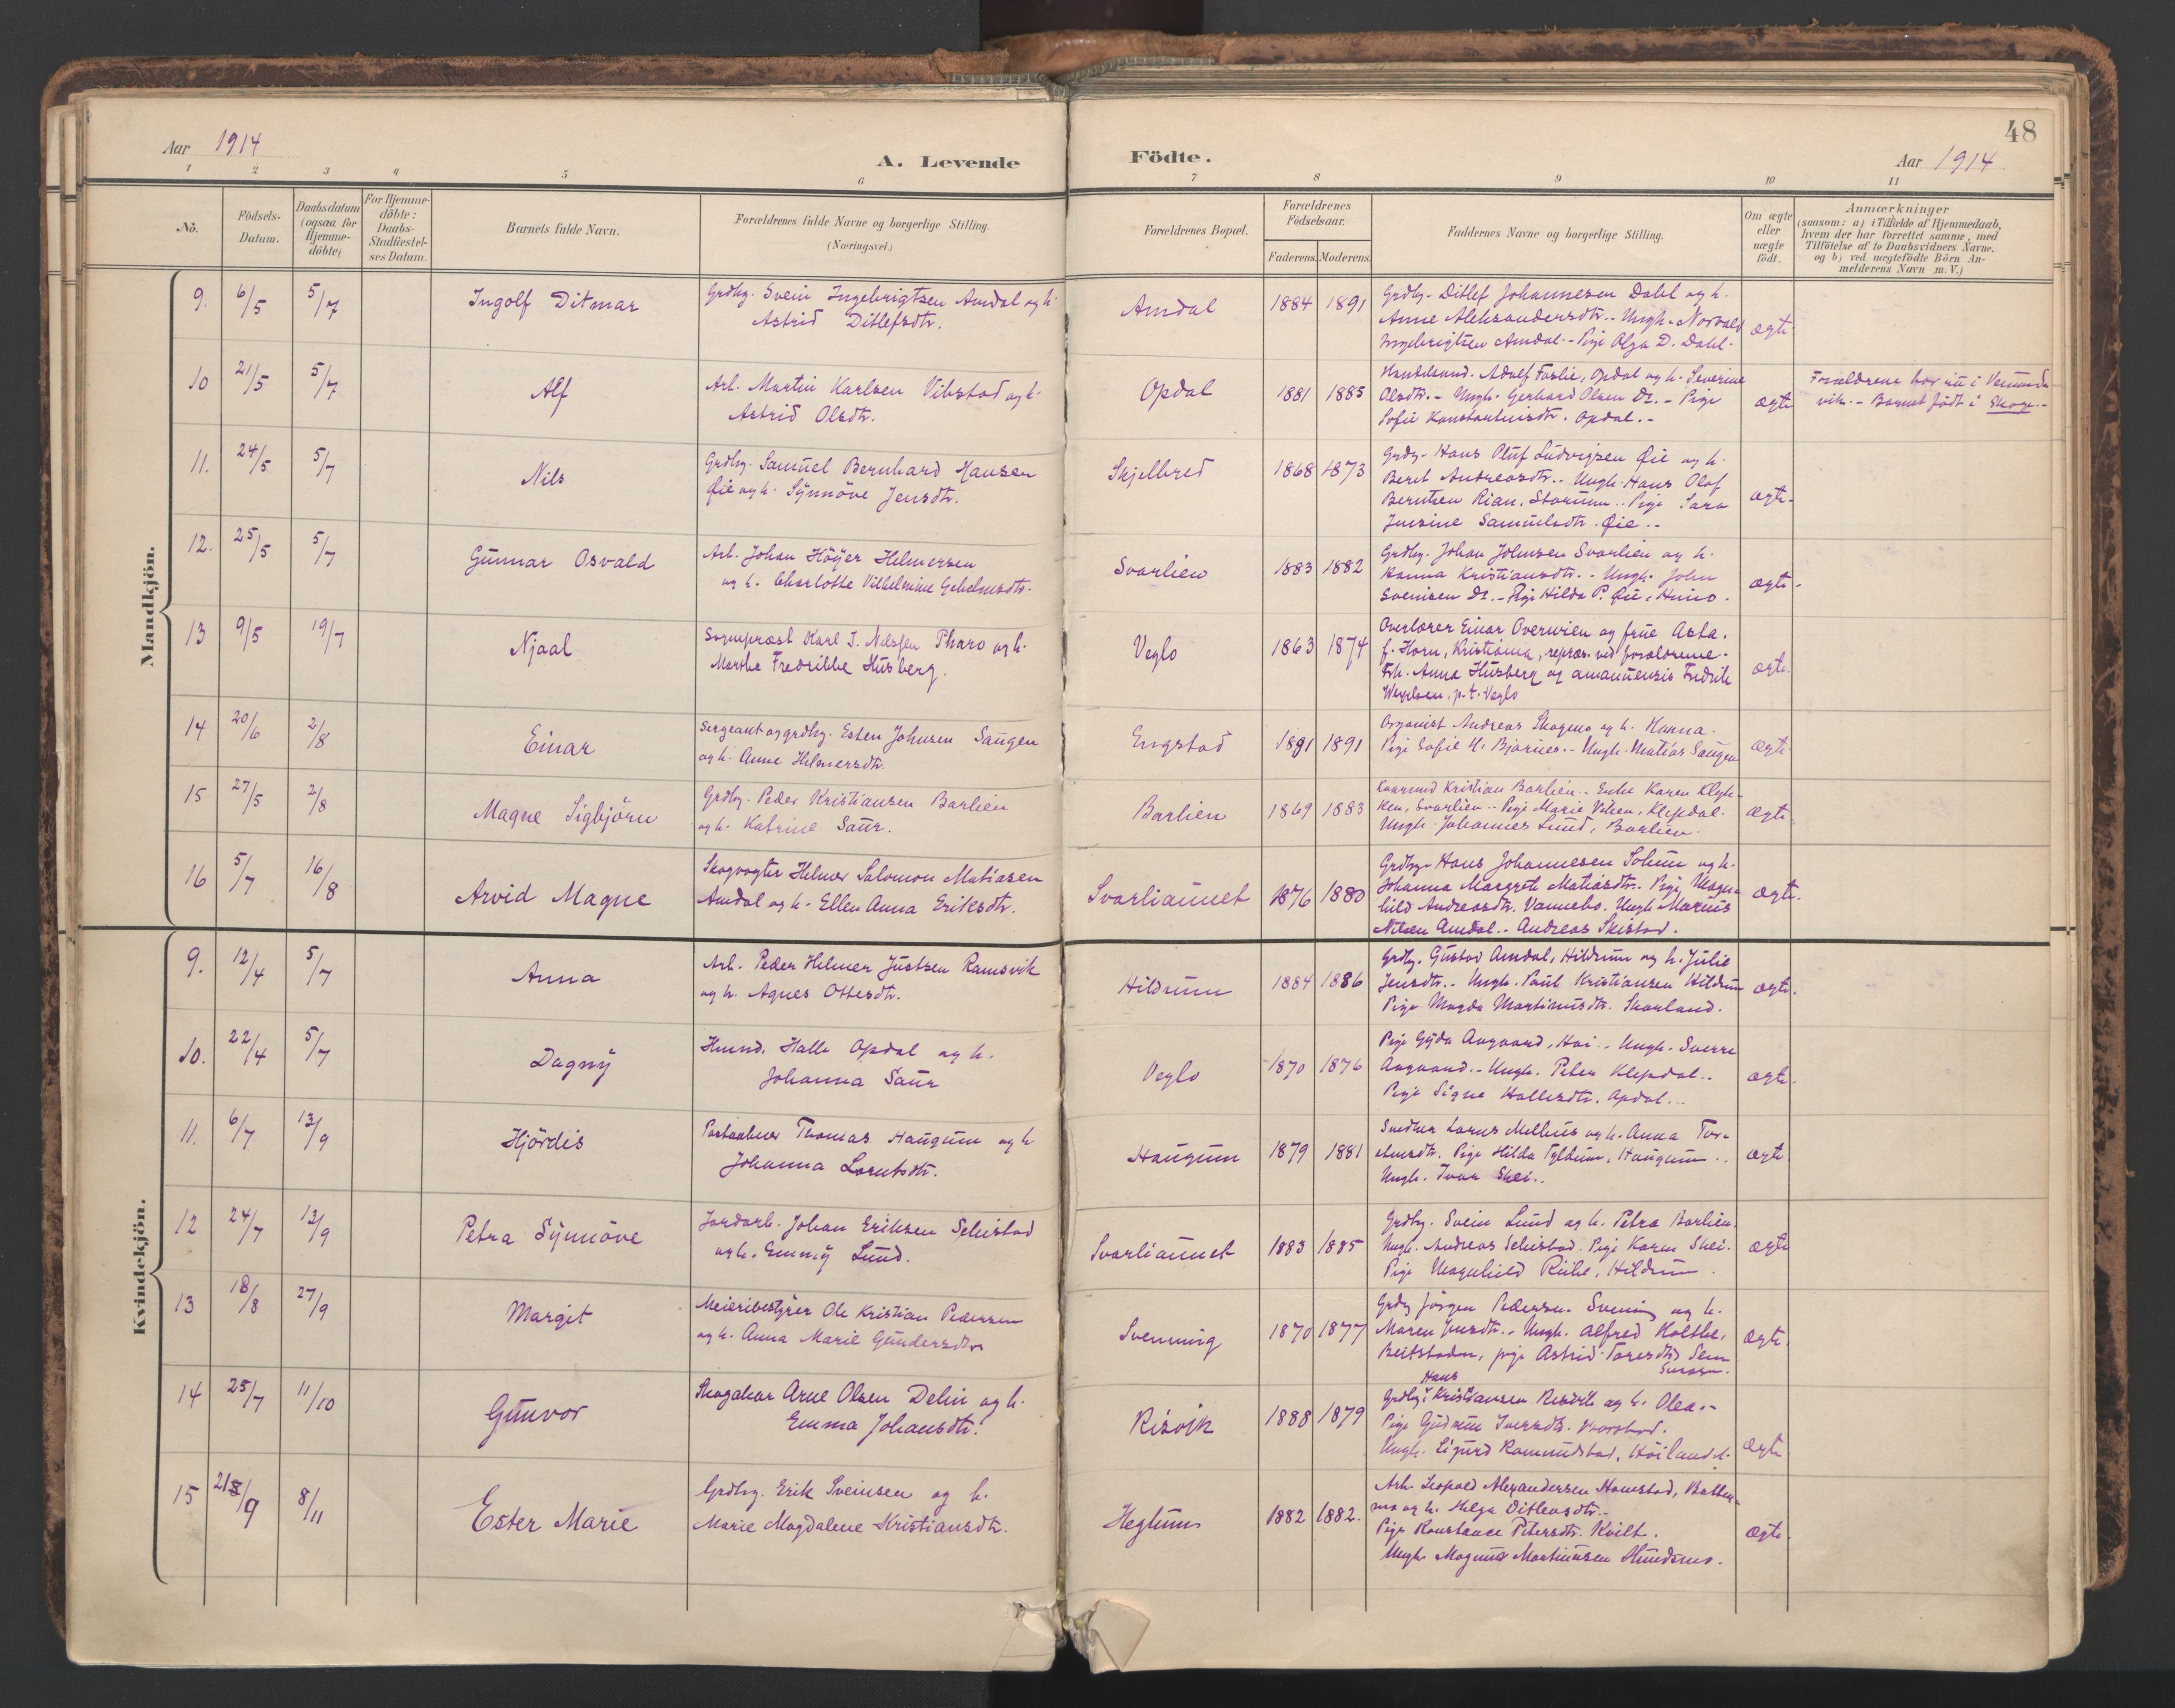 48
Aar 1914
A. Levende
Födte.
Aar 1914
1 2 3 4 5 6 7 8 9 10 11
No.
Födsels-
Datum.
Daabsdatum
(ogsaa for
Hjemme-
döbte)
For Hjemme-
döbte:
Daabs-
Stadfæstel-
ses Datum.
Barnets fulde Navn.
Forældrenes fulde Navne og borgerlige Stilling
(Næringsvei.)
Forældrenes Bopæl.
Forældrenes
Födselsaar.
Faderens. Moderens.
Faddernes Navne og borgerlige Stilling.
Om ægte
eller
uægte
födt.
Anmærkninger
(saasom: a) i Tilfælde af Hjemmedaab,
hvem der har forrettet samme, med
Tilföielse af to Daabsvidners Navne.
og b) ved uægtefödte Börn An-
melderens Navn m. V.)
Mandkjön.
9. 6/5 5/7 Ingolf Ditmar
Grdbg. Svein Ingebrigtsen Amdal og h.
Astrid Ditlefsdtr.
Amdal 1884 1891
Grdbg. Ditlef Johannesen Dahl og h.
Anne Aleksandersdtr. - Ungk. Norvald
Ingebrigtsen Amdal. - Pige Olga D. Dahl.
ægte
10 21/5 5/7 Alf
Arb. Martin Karlsen Vibstad og h.
Astrid Olsdtr.
Opdal 1881 1885
Handelsmd. Adolf Foslie, Opdal og h. Severine
Olsdtr. - Ungk. Gerhard Olsen Do. - Pige
Sofie Konstantinsdtr. Opdal. -
ægte
Forældrene bor nu i Vemunds
vik. - Barnet födt i Skage. -
11. 24/5 5/7 Nils
Grdbg. Samuel Bernhard Hansen
Øie og h. Synnöve Jensdtr.
Skjelbred 1868 1873
Grdbg. Hans Oluf Ludvigsen Øie og h.
Beret Andreasdtr. - Ungk. Hans Olaf
Berntsen Rian, . - Pige Sara
Jensine Samuelsdtr. Øie. -
ægte.
12. 25/5 5/7 Gunnar Osvald
Arb. Johan Höyer Helmersen
og h. Charlotte Vilhelmine dtr.
Svarlien 1883 1882
Grdbg. Johan Johnsen Svarlien og h.
Hanna Kristiansdtr. - Ungk. John
Svensen Do. - Pige Hilda P. Øie, .
ægte.
13 9/5 19/7 Njaal
Sognepræst Karl J. Nilssen Pharo og h.
Marthe Fredrikke Husberg.
Veglo 1863 1874
Overlærer Einar Overwien og frue Asta,
f. Horn, Kristiania, repræs. ved forældrene.
Frk. Anna Husberg og amanuensis Fredrik
, p. t. Veglo
ægte.
14 20/6 2/8 Einar
Sergeant og grdbg. Esten Johnsen Saugen
og h. Anne Helmersdtr.
Engstad 1891 1891
Organist Andreas Skogmo og h. Hanna.
Pige Sofie H. Bjørnes. - Ungk. Matias Saugen
ægte
15 27/5 2/8 Magne Sigbjörn
Grdbg. Peder Kristiansen Barlien
og h. Katrine Saur.
Barlien 1869 1883
Kaarmd Kristian Barlien. - Enke Karen
, Svarlien. - Pige Marie Viken, Klepdal.
Ungk. Johannes Lund, Barlien.
ægte
16 5/7 16/8 Arvid Magne
Skogvogter Helmer Salomon Matiasen
Amdal og h. Ellen Anna Eriksdtr.
Svarliaunet 1876 1880
Grdbg. Hans Johannesen Solum og h.
Johanna Margrete Matiasdtr. Pige Magn-
hild Andreasdtr. Vannebo. Ungk. Marius
Nilsen Amdal. - Andreas Skistad.
ægte.
Kvindekjön.
9. 12/4 5/7 Anna
Arb. Peder Helmer Justsen Ramsvik
og h. Agnes Ottesdtr.
Hildrum 1884 1886
Grdbg. Gustav Amdal, Hildrum og h. Julie
Jensdtr. - Ungk. Paul Kristiansen Hildrum
Pige Magda Martiniusdtr. Skarland.
ægte.
10. 22/4 5/7 Dagny
Husmd. Halle Opdal og h.
Johanna Saur
Veglo 1870 1876
Pige Gyda Aagaard, . - Ungk. Sverre
Aagaard. - Ungk. Peter Klepdal. -
Pige Signe Hallesdtr. Opdal. -
ægte.
11. 6/7 13/9 Hjördis
Postaabner Thomas Haugum og h.
Johanna Lorntsdtr.
Haugum 1879 1881
Snedker Lorns Mellius og h. Anna Tor-
. Pige Hilda Tyldum, Haugum. -
Ungk. Ivar Skei. -
ægte
12 24/7 13/9 Petra Synnöve
Jordarb. Johan Eriksen Sehistad
og h. Emmy Lund.
Svarliaunet 1883 1885
Grdbg. Svein Lund og h. Petra Barlien.
Ungk. Andreas Sehistad. Pige Karen Skei.
Pige Magnhild , Hildrum.
ægte
13 18/8 27/9 Margit
Meieribestyrer Ole Kristian Pedersen
og h. Anna Marie Gundersdtr.
Svenning 1870 1877
Grdbg Jörgen Pedersen Svening og h.
Maren Jensdtr. - Ungk. Alfred Holthe,
Beitstaden, pige Astrid Toresdtr Sem
Snaasen.
ægte.
14 25/7 11/10 Gunvor
Skogakar Arne Olsen Delin og h.
Emma Johansdtr.
Risvik 1888 1879
Hans
Grdbg. Kristiansen Risvik og h. Olea. -
Pige Gudrun Iversdtr. .
Ungk. Sigurd Romundstad, Höilandet.
ægte
15 21/9 8/11 Ester Marie
Grdbg. Erik Sveinsen og h.
Marie Magdalene Kristiansdtr.
Heglum 1882 1882.
Arb. Leopold Alexandersen Homstad,
og h. Helga Ditlevsdtr. -
Pige Konstance Petersdtr. Kvilt.
Ungk. Magnus Martinusen Hundsmo.
ægte.